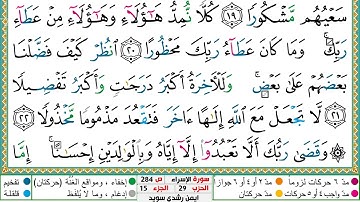 سَعْيُهُم مَّشْكُورًا ١٩ كُلًّا نُّمِدُّ هَٰٓؤُلَآءِ وَهَٰٓؤُلَآءِ مِنْ عَطَآءِ
رَبِّكَ ۚ وَمَا كَانَ عَطَآءُ رَبِّكَ مَحْظُورًا ٢٠ ٱنظُرْ كَيْفَ فَضَّلْنَا
بَعْضَهُمْ عَلَىٰ بَعْضٍ ۚ وَلَلْءَاخِرَةُ أَكْبَرُ دَرَجَٰتٍ وَأَكْبَرُ تَفْضِيلًا
٢١ لَّا تَجْعَلْ مَعَ ٱللَّهِ إِلَٰهًا ءَاخَرَ فَتَقْعُدَ مَذْمُومًا مَّخْذُولًا ٢٢
وَقَضَىٰ رَبُّكَ أَلَّا تَعْبُدُوٓا۟ إِلَّآ إِيَّاهُ وَبِٱلْوَٰلِدَيْنِ إِحْسَٰنًا ۚ إِمَّا
مدّ ٦ حركات لزوماً مدّ ٢ أو ٤ أو ٦ جوازاً
مدّ واجب ٤ أو ٥ حركات مدّ حركتان
سورة الإسراء ص 284
الحزب 29 الجزء 15
أيمن رشدي سويد
إخفاء، ومواقع الغُنَّة (حركتان) تفخيم
إدغام، وما لا يُلفَظ قلقلة